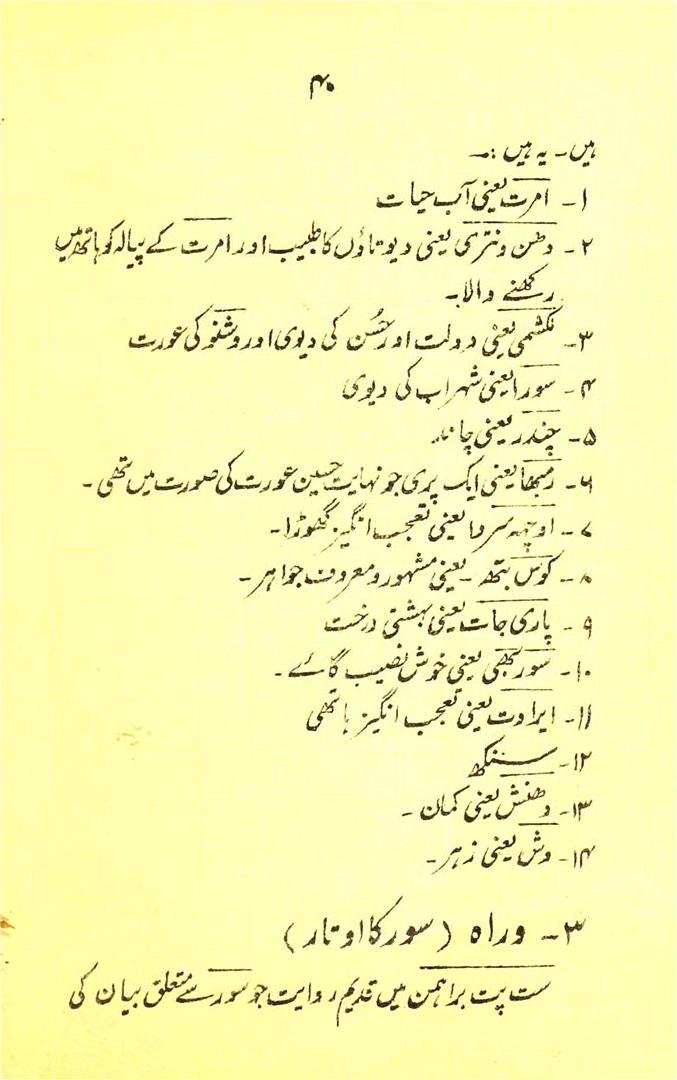 ۴۰
ہیں۔ یہ ہیں :۔
۱۔ امرت یعنی آب حیات
۲۔ دھن ونتری یعنی دیوتاؤں کا طبیب اور امرت کے پیالہ کو ہاتھ میں
رکھنے والا۔
۳۔ لکشمی یعنی دولت اور حسُن کی دیوی اور وشنو کی عورت
۴۔ سورا یعنی شہراب کی دیوی
۵۔ چندر یعنی چاند
۶۔ رمبھا یعنی ایک پری جو نہایت حسین عورت کی صورت میں تھی۔
۷۔ اوچہہ سردا یعنی تعجب انگیز گھوڑا۔
۸۔ کوس بتھ ۔ یعنی مشہور و معروف جواہر۔
۹۔ پاری جات یعنی بہشتی درخت
۱۰۔ سوربھی یعنی خوش نصیب گائے۔
۱۱۔ ایراوت یعنی تعجب انگیز ہاتھی
۱۲۔ سنکھ
۱۳۔ دھنش یعنی کمان۔
۱۴۔ وش یعنی زہر۔
۳۔ وراہ (سور کا اوتار)
ست پت براہمن میں قدیم روایت جو سور سے متعلق بیان کی